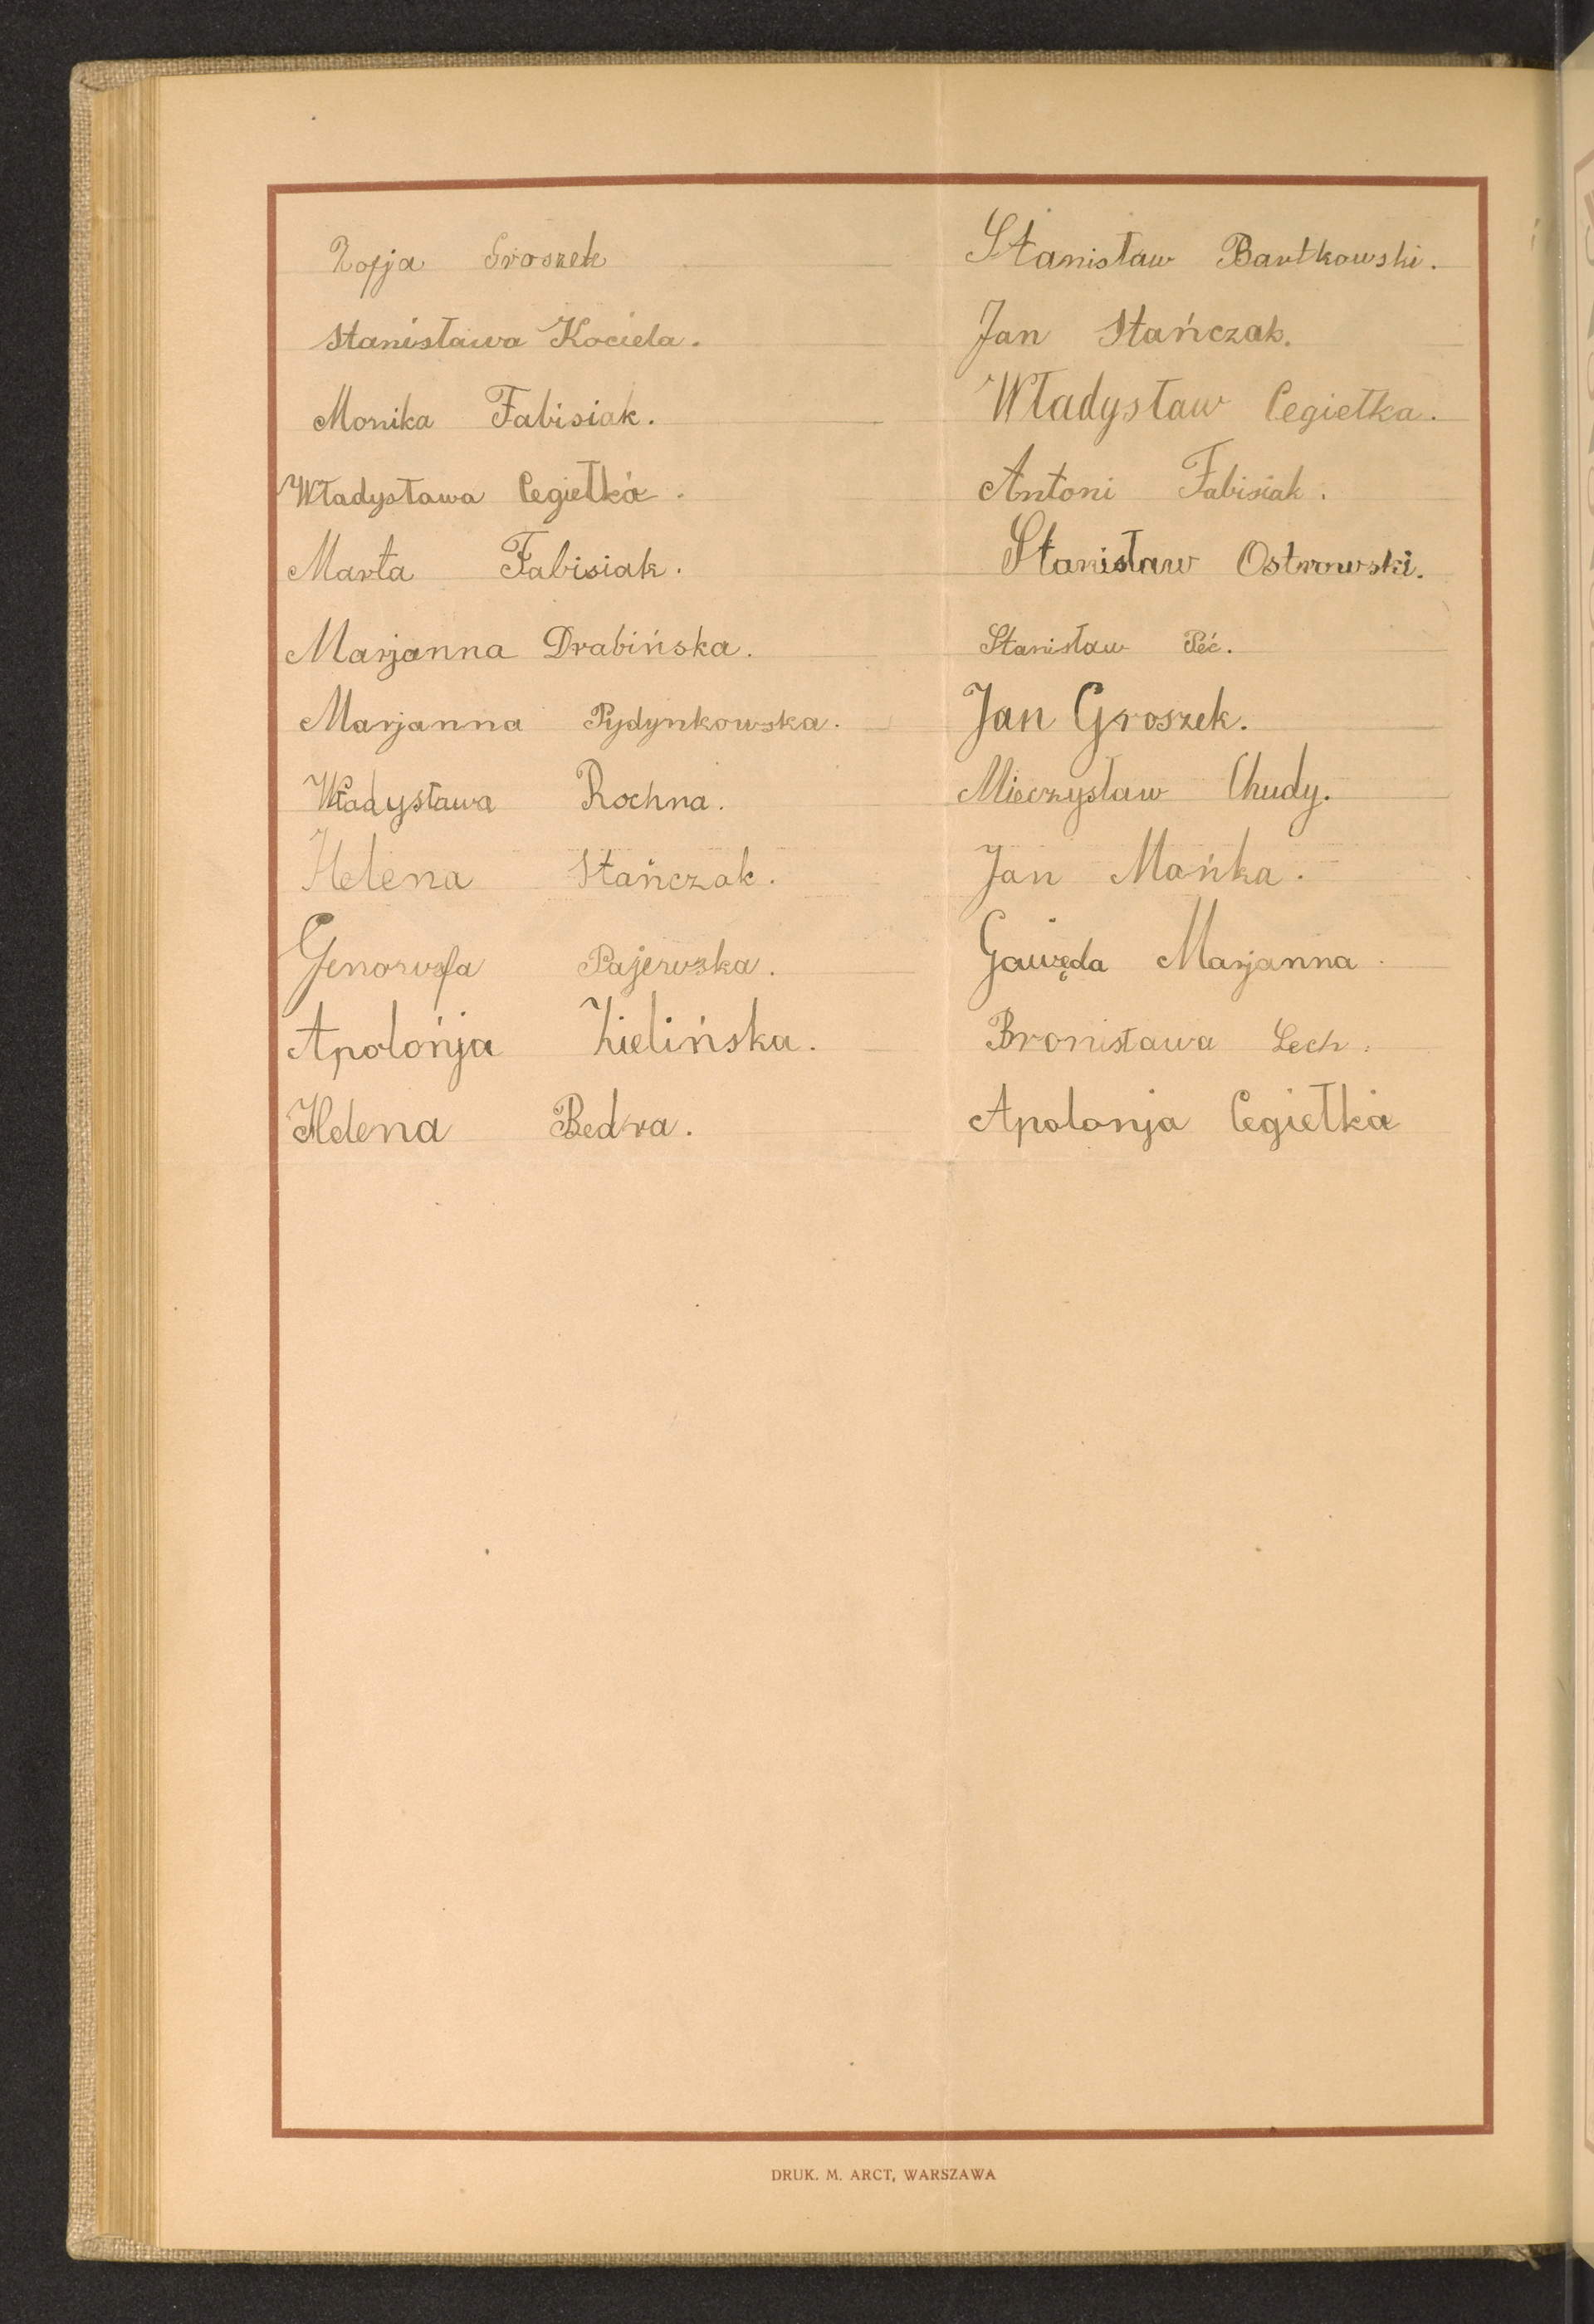 Zofja Groszek
Stanisława Kociela.
Monika Fabisiak.
Władysława Cegiełka.
Marta Fabisiak.
Marjanna Drabińska.
Marjanna Pydynkowska.
Władysława Rochna.
Helena Stańczak.
Genowefa Pajewska.
Apolońja Zielińska.
Helena Bedra.
Stanisław Bartkowski.
Jan Stańczak.
Władysław Cegiełka.
Antoni Fabisiak.
Stanisław Ostrowski.
Stanisław Peć.
Jan Groszek.
Mieczysław Chudy.
Jan Mańka.
Gawęda Marjanna.
Bronisława Lech.
Apolonja Cegiełka
DRUK. M. ARCT, WARSZAWA